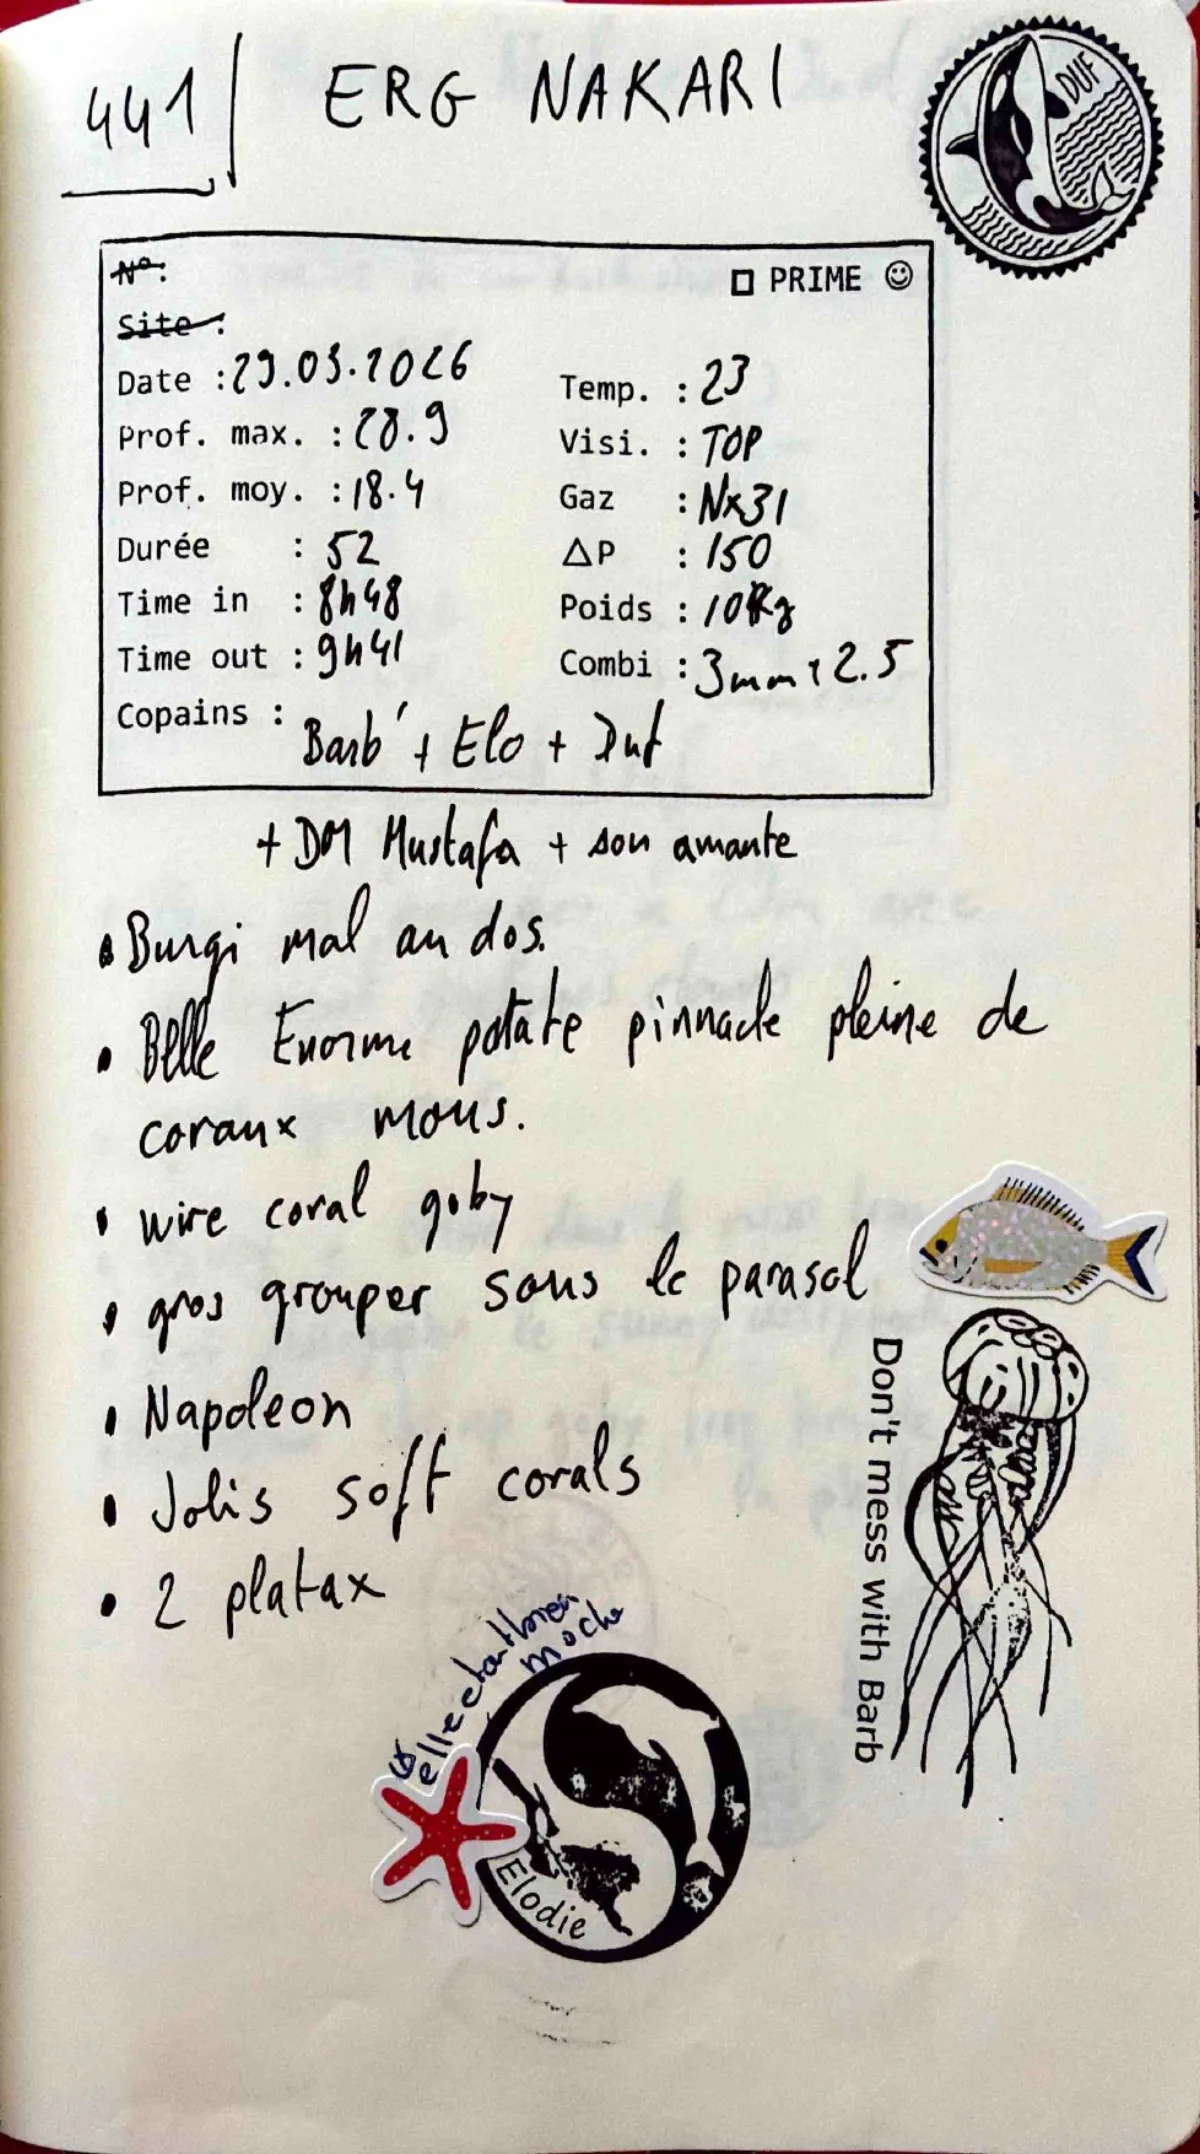 441 ERG NAKARI
DUF
N°:
PRIME
Site :
Date : 29.03.2026
Temp. : 23
Prof. max. : 28.9
Visi. : TOP
Prof. moy. : 18.4
Gaz : Nx31
Durée : 52
ΔP : 150
Time in : 8h48
Poids : 10Kg
Time out : 9h41
Combi : 3mm + 2.5
Copains : Barb' + Elo + Duf
+ DM Mustafa + son amante
• Burgi mal au dos.
• Belle Enorme patate pinnacle pleine de
coraux mous.
• wire coral goby
• gros grouper sous le parasol
• Napoleon
• Jolis soft corals
• 2 platax
Don't mess with Barb
elle est bien
moche
Elodie